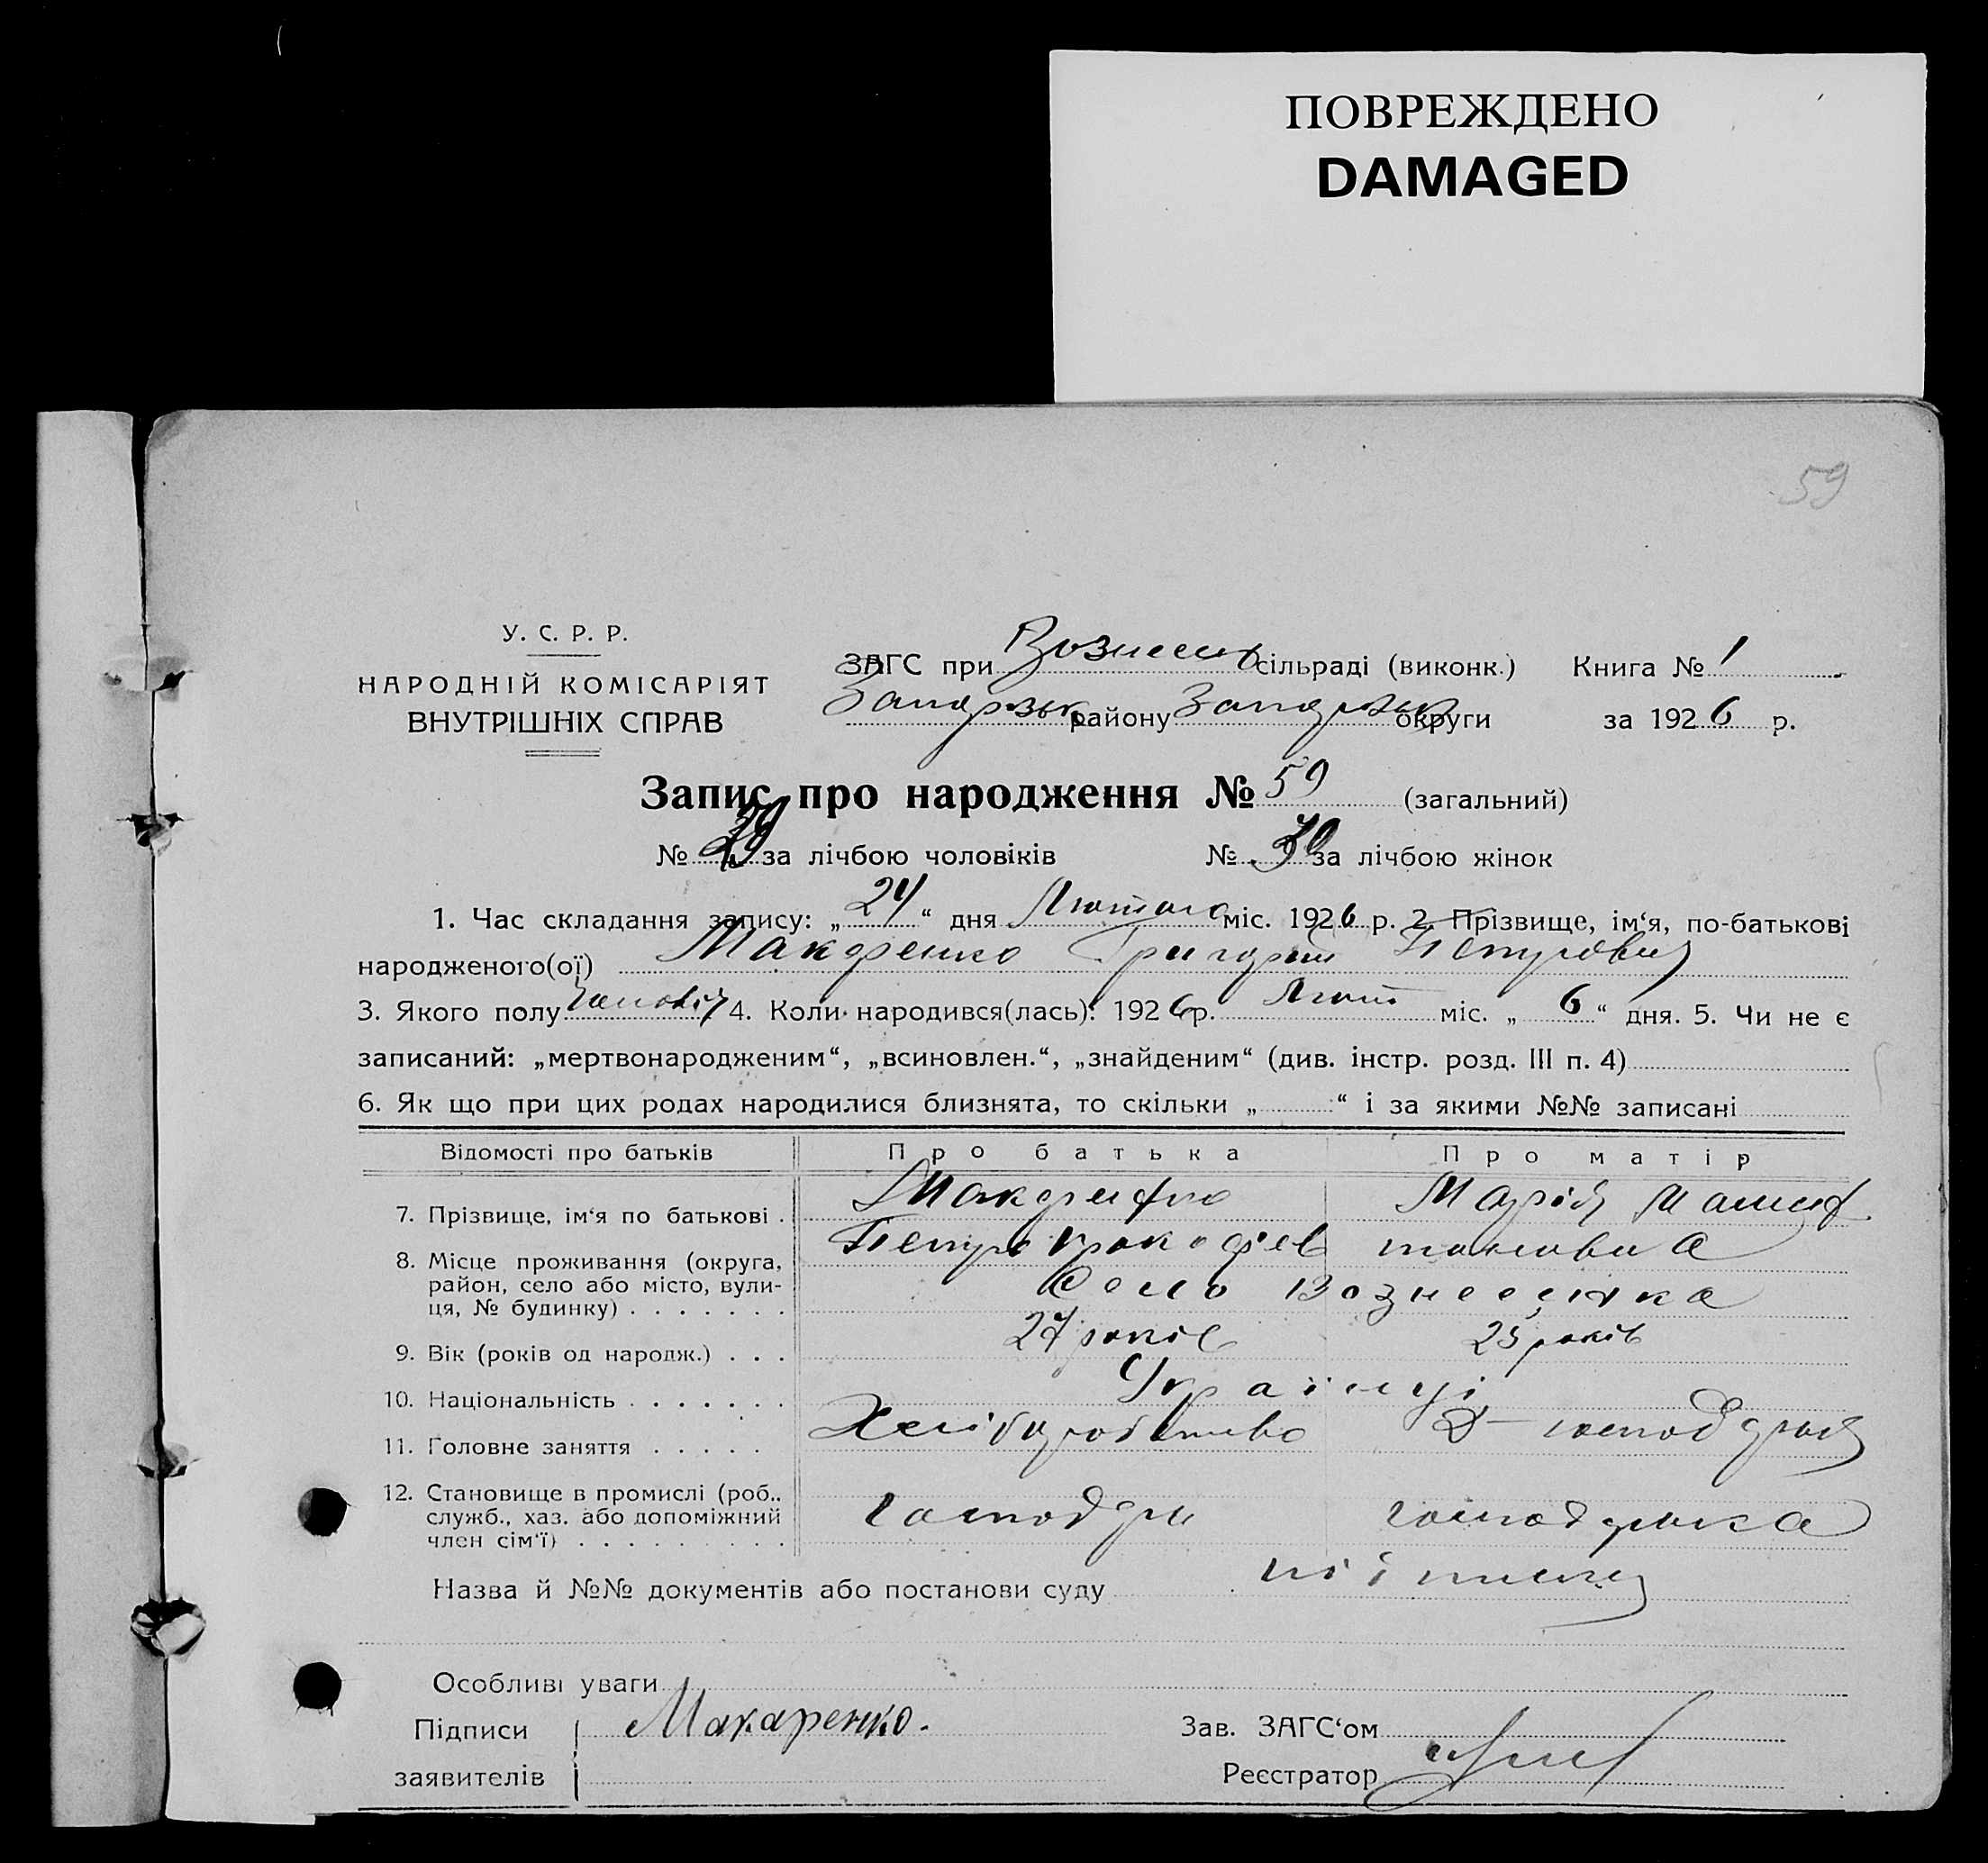 ПОВРЕЖДЕНО
DAMAGED
59
У. С. Р. Р.
НАРОДНІЙ КОМІСАРІЯТ
ВНУТРІШНІХ СПРАВ
ЗАГС при Вознесен сільраді (виконк.) Книга № 1
Запорізьк району Запорізьк округи за 1926 р.
Запис про народження № 59 (загальний)
№ 29 за лічбою чоловіків № 30 за лічбою жінок
1. Час складання запису: „24“ дня Лютого міс. 1926 р. 2. Прізвище, ім‘я, по-батькові
народженого(ої) Макаренко Григорій Петрович
3. Якого полу 4. Коли народився(лась): 1926 р. Лют міс. „6“ дня. 5. Чи не є
записаний: „мертвонародженим“, „всиновлен.“, „знайденим“ (див. інстр. розд. III п. 4)
6. Як що при цих родах народилися близнята, то скільки „ “ і за якими №№ записані
Відомості про батьків Про батька Про матір
7. Прізвище, ім‘я по батькові . Макаренко Марія
Петро Прокофіев
8. Місце проживання (округа,
район, село або місто, вули-
ця, № будинку) . . . . . . . Село Вознесенка
9. Вік (років од народж.) . . . 27 років 25 років
10. Національність . . . . . . . Українці
11. Головне заняття . . . . . Хліборобство
12. Становище в промислі (роб.,
служб., хаз. або допоміжний
член сім‘ї) . . . . . . . . . господар господарка
Назва й №№ документів або постанови суду
Особливі уваги
Підписи Макаренко. Зав. ЗАГС‘ом
заявителів Реєстратор